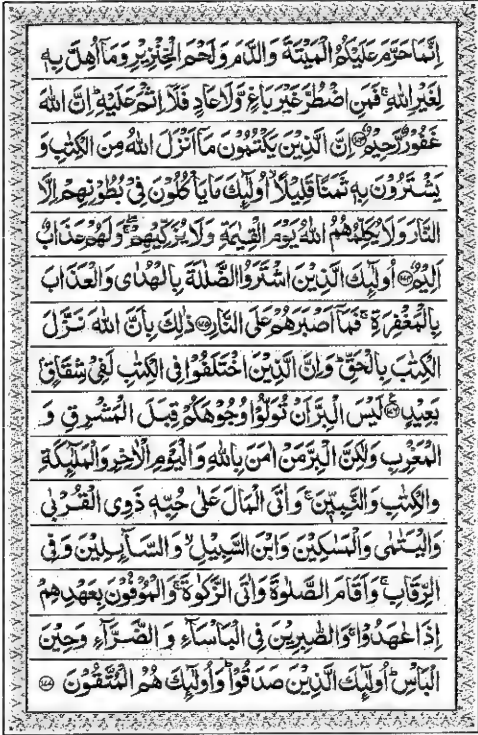 اِنَّمَا حَرَّمَ عَلَيْكُمُ الْمَيْتَةَ وَالدَّمَ وَلَحْمَ الْخِنْزِيْرِ وَمَآ اُهِلَّ بِهٖ
لِغَيْرِ اللّٰهِ ۚ فَمَنِ اضْطُرَّ غَيْرَ بَاغٍ وَّلَا عَادٍ فَلَآ اِثْمَ عَلَيْهِ ؕ اِنَّ اللّٰهَ
غَفُوْرٌ رَّحِيْمٌ ﴿۱۷۳﴾ اِنَّ الَّذِيْنَ يَكْتُمُوْنَ مَآ اَنْزَلَ اللّٰهُ مِنَ الْكِتٰبِ وَ
يَشْتَرُوْنَ بِهٖ ثَمَنًا قَلِيْلًا ۙ اُولٰٓئِكَ مَا يَاْكُلُوْنَ فِيْ بُطُوْنِهِمْ اِلَّا
النَّارَ وَلَا يُكَلِّمُهُمُ اللّٰهُ يَوْمَ الْقِيٰمَةِ وَلَا يُزَكِّيْهِمْ ۚۖ وَلَهُمْ عَذَابٌ
اَلِيْمٌ ﴿۱۷۴﴾ اُولٰٓئِكَ الَّذِيْنَ اشْتَرَوُا الضَّلٰلَةَ بِالْهُدٰى وَالْعَذَابَ
بِالْمَغْفِرَةِ ۚ فَمَآ اَصْبَرَهُمْ عَلَى النَّارِ ﴿۱۷۵﴾ ذٰلِكَ بِاَنَّ اللّٰهَ نَزَّلَ
الْكِتٰبَ بِالْحَقِّ ؕ وَاِنَّ الَّذِيْنَ اخْتَلَفُوْا فِى الْكِتٰبِ لَفِيْ شِقَاقٍۭ
بَعِيْدٍ ﴿۱۷۶﴾ لَيْسَ الْبِرَّ اَنْ تُوَلُّوْا وُجُوْهَكُمْ قِبَلَ الْمَشْرِقِ وَ
الْمَغْرِبِ وَلٰكِنَّ الْبِرَّ مَنْ اٰمَنَ بِاللّٰهِ وَالْيَوْمِ الْاٰخِرِ وَالْمَلٰٓئِكَةِ
وَالْكِتٰبِ وَالنَّبِيّٖنَ ۚ وَاٰتَى الْمَالَ عَلٰى حُبِّهٖ ذَوِى الْقُرْبٰى
وَالْيَتٰمٰى وَالْمَسٰكِيْنَ وَابْنَ السَّبِيْلِ ۙ وَالسَّآئِلِيْنَ وَفِى
الرِّقَابِ ۚ وَاَقَامَ الصَّلٰوةَ وَاٰتَى الزَّكٰوةَ ۚ وَالْمُوْفُوْنَ بِعَهْدِهِمْ
اِذَا عٰهَدُوْا ۚ وَالصّٰبِرِيْنَ فِى الْبَاْسَآءِ وَالضَّرَّآءِ وَحِيْنَ
الْبَاْسِ ؕ اُولٰٓئِكَ الَّذِيْنَ صَدَقُوْا ؕ وَاُولٰٓئِكَ هُمُ الْمُتَّقُوْنَ ﴿۱۷۷﴾